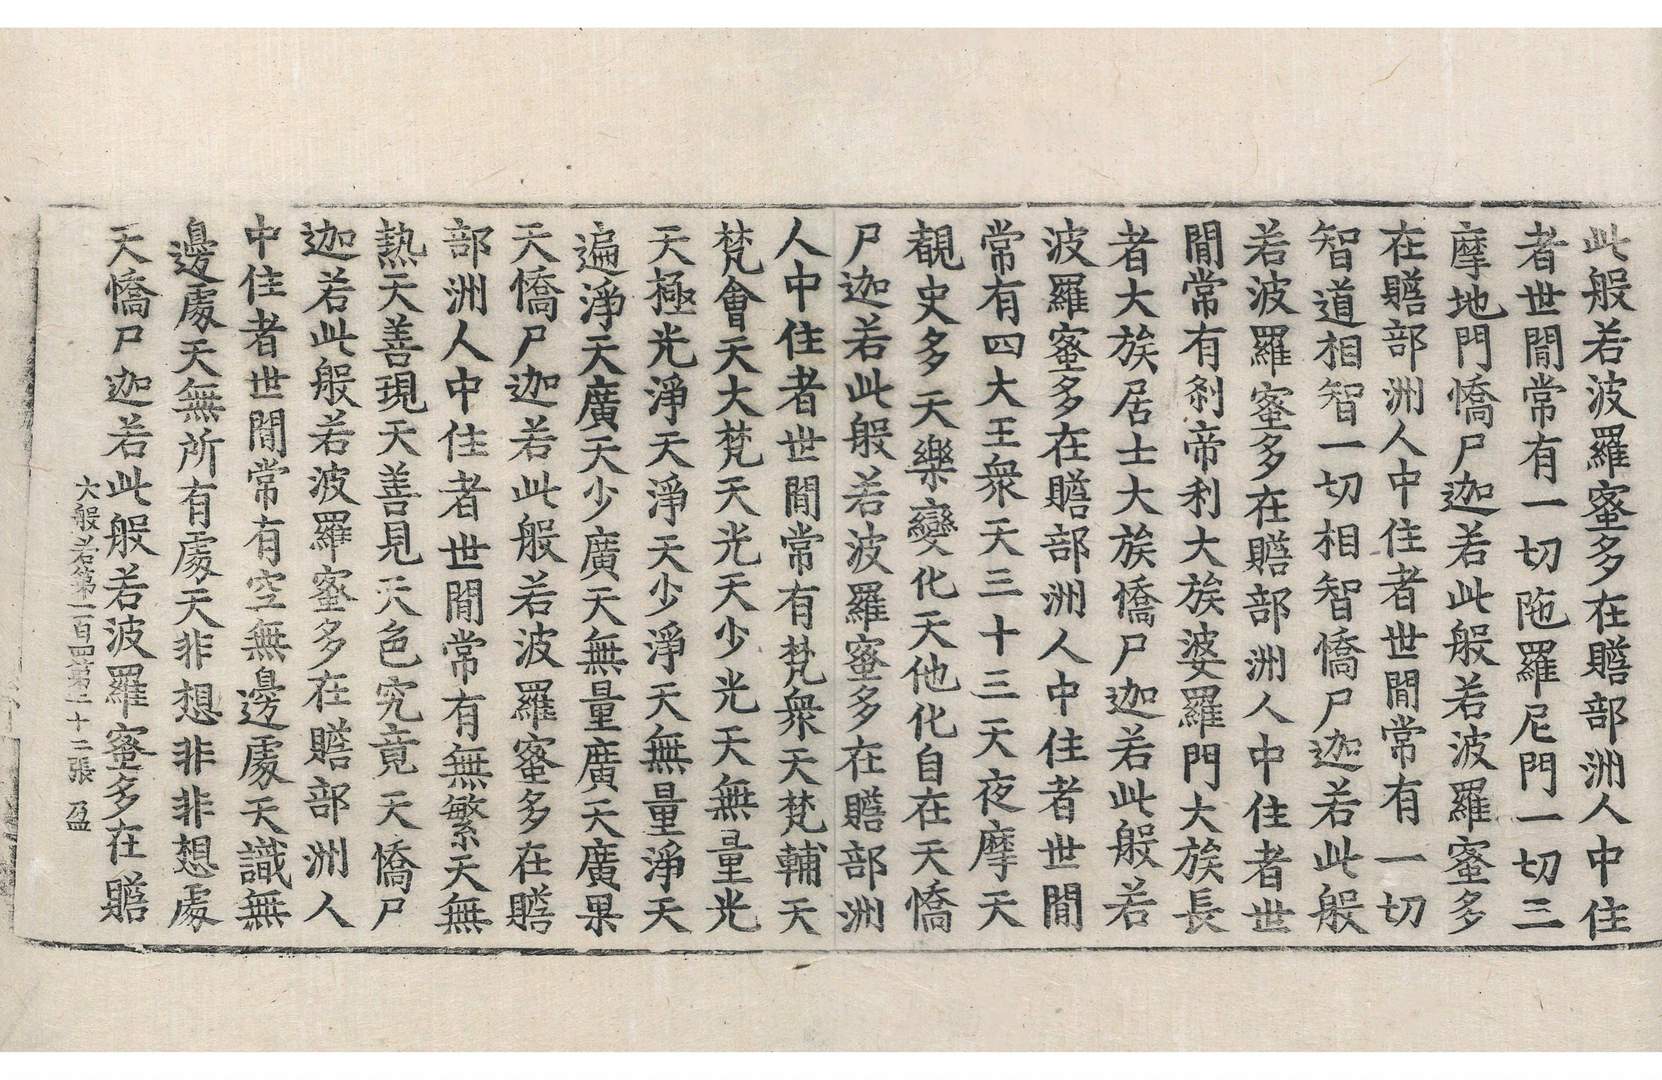 此般若波羅蜜多在贍部洲人中住
者世間常有一切陁羅尼門一切三
摩地門憍尸迦若此般若波羅蜜多
在贍部洲人中住者世間常有一切
智道相智一切相智憍尸迦若此般
若波羅蜜多在贍部洲人中住者世
間常有剎帝利大族婆羅門大族長
者大族居士大族憍尸迦若此般若
波羅蜜多在贍部洲人中住者世間
常有四大王衆天三十三天夜摩天
覩史多天樂變化天他化自在天憍
尸迦若此般若波羅蜜多在贍部洲
人中住者世間常有梵衆天梵輔天
梵會天大梵天光天少光天無量光
天極光淨天淨天少淨天無量淨天
遍淨天廣天少廣天無量廣天廣果
天憍尸迦若此般若波羅蜜多在贍
部洲人中住者世間常有無繁天無
熱天善現天善見天色究竟天憍尸
迦若此般若波羅蜜多在贍部洲人
中住者世間常有空無邊處天識無
邊處天無所有處天非想非非想處
天憍尸迦若此般若波羅蜜多在贍
大般若第一百四第二十二張 盈